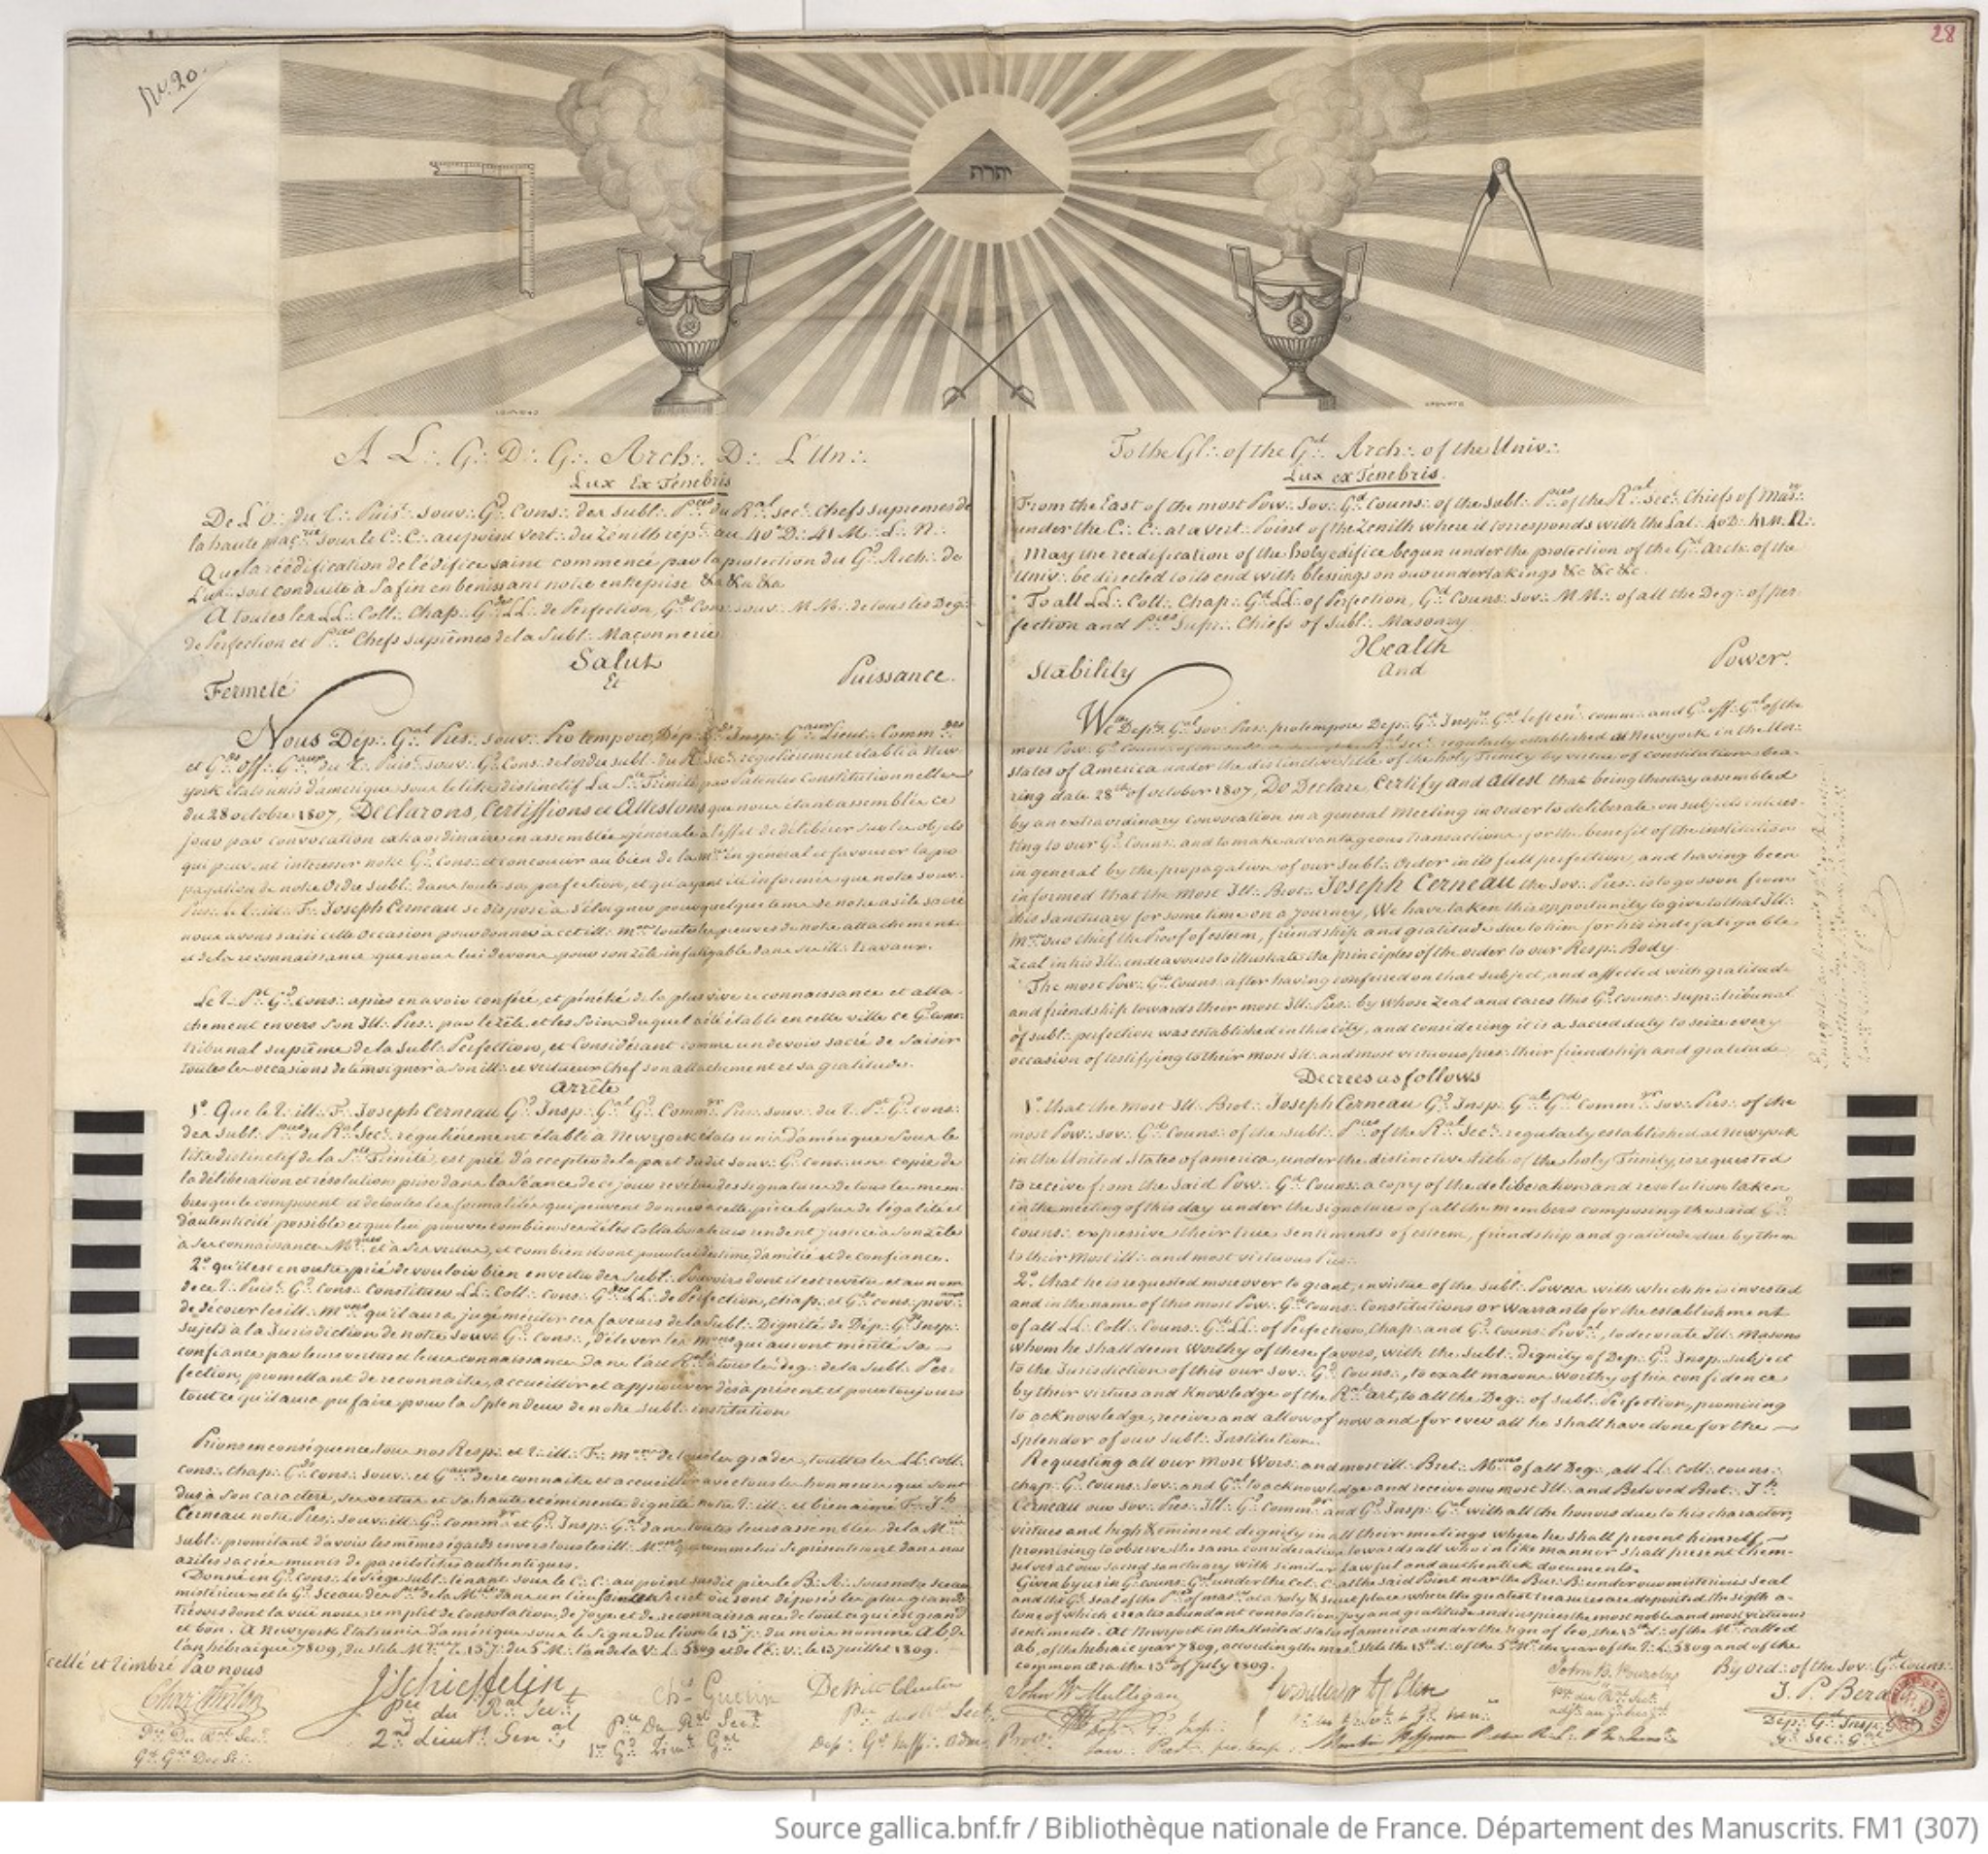 No. 20.
28
יהוה
A L∴ G∴ D∴ G∴ Arch∴ D∴ L'Un∴
Lux Ex Tenebris
De L'O∴ du T∴ Puis∴ souv∴ Gd Cons∴ des subl∴ Pces du Ral Sec∴ chefs suprêmes de
la haute maçrie sous le C∴ C∴ au point vert∴ du Zénith rép∴ au 40e D∴ 41 M∴ L∴ N∴
Que la réédification de l'édifice saint commencé par la protection du Gd Arch∴ de
L'Un∴ soit conduite à sa fin en benissant notre entreprise &a &a &a
A toutes les LL∴ Coll∴ Chap∴ Gdes LL∴ de Perfection, Gds Cons∴ souv∴ M M∴ de tous les Deg∴
de Perfection et Pces Chefs suprêmes de la Subl∴ Maçonnerie
Salut
Fermeté Et Puissance.
Nous Dép∴ Gal Pres∴ souv∴ Pro tempore, Dép∴ Gds Insp∴ Gaux Lieut∴ Comm
et Gds off∴ Gaux du T∴ Puis∴ souv∴ Gd Cons∴ de l'ordre subl∴ du Ral Sec∴ régulièrement établi à New-
york états unis d'amérique sous le titre distinctif La Ste Trinité par Patentes Constitutionnelles
du 28 octobre 1807, Déclarons, Certiffions et Attestons que nous étant assemblés ce
jour par convocation extraordinaire en assemblée générale à l'effet de délibérer sur les objets
qui peuvent intéresser notre Gd Cons∴ et concourir au bien de la mie en général et favoriser la pro
pagation de notre Ordre subl∴ dans toute sa perfection, et qu'ayant été informés que notre souv∴
Pres∴ le T∴ ill∴ F∴ Joseph Cerneau se dispose à s'éloigner pour quelque tems de notre asile sacré
nous avons saisi cette occasion pour donner à cet ill∴ mon toutes les preuves de notre attachement
et de la reconnaissance que nous lui devons pour son zèle infatigable dans ses ill∴ travaux.
Le T∴ Pt Gd Cons∴ après en avoir conféré, et pénétré de la plus vive reconnaissance et atta-
chement envers son Ill∴ Pres∴ par le zèle et les soins duquel a été établi en cette ville ce Gd Cons∴
tribunal suprême de la Subl∴ Perfection, et Considérant comme un devoir sacré de saisir
toutes les occasions de témoigner à son ill∴ et vertueux Chef son attachement et sa gratitude.
Arrête
1º Que le T∴ ill∴ F∴ Joseph Cerneau Gd Insp∴ Gal Gd Commr Pres∴ souv∴ du T∴ Pt Gd cons∴
des subl∴ Pces du Ral Sec∴ régulièrement établi à New york états unis d'amérique sous le
titre distinctif de la Ste Trinité, est prié d'accepter de la part dudit souv∴ Gd cons∴ une copie de
la délibération et résolution prise dans la Séance de ce jour revêtue des signatures de tous les mem-
bres qui le composent et de toutes les formalités qui peuvent donner à cette pièce le plus de légalité et
d'autenticité possible et qui lui prouve combien ses zélés Collaborateurs rendent justice à son zèle
à ses connaissances Mques et à ses vertus, et combien ils ont pour lui d'estime, d'amitié et de confiance.
2º qu'il est en outre prié de vouloir bien en vertu des Subl∴ Pouvoirs dont il est revêtu et au nom
de ce T∴ Puis∴ Gd Cons∴ Constituer LL∴ Coll∴ Cons∴ Gdes LL∴ de Perfection, Chap∴ et Gds cons∴ prov
de décorer les ill∴ mons qu'il aura jugé mériter ces faveurs de la Subl∴ Dignité de Dép∴ Gds Insp∴
sujets à la Jurisdiction de notre Souv∴ Gd Cons∴, d'élever les mons qui auront mérité sa
confiance par leurs vertus et leurs connaissances dans l'art Ral à tous les deg∴ de la Subl∴ Per-
fection, promettant de reconnaitre, accueillir et approuver dès à présent et pour toujours
tout ce qu'il aura pu faire pour la Splendeur de notre Subl∴ institution
Prions en conséquence tous nos Resp∴ et T∴ ill∴ FF∴ mons de tous les grades, toutes les LL∴ Coll∴
cons∴ chap∴ Gds cons∴ souv∴ et Gaux de reconnaitre et accueillir avec tous les honneurs qui sont
dus à son caractère, ses vertus et sa haute et éminente dignité notre T∴ ill∴ et bien aimé F∴ Jh
Cerneau notre Pres∴ souv∴ ill∴ Gd Commr et Gd Insp∴ Gal dans toutes leurs assemblées de la M∴
subl∴ promettant d'avoir les mêmes égards envers tous les ill∴ Mons qui comme lui se présenteront dans nos
aziles sacrés munis de pareils titres authentiques.
Donné en Gd Cons∴ le Siège subl∴ tenant sous le C∴ C∴ au point susdit près le B∴ A∴ sous notre sceau
mistérieux et le Gd Sceau des Pces de la Mie dans un lieu saint et secret où sont déposés les plus grands
trésors dont la vue nous remplit de consolation, de joye et de reconnaissance de tout ce qui est grand
et bon. A New york Etats unis d'amérique sous le Signe du lion le 13e j∴ du mois nommé Ab, de
l'an hébraique 7809, du stile Mque 13e j∴ du 5e M∴ l'an de la V∴ L∴ 5809 et de l'E∴ v∴ le 13 juillet 1809.
cellé et timbré Par nous
J Schieffelin
Pce du Ral Sect
2nd Lieut Genal
Chs Guerin
Pce Du Ral Sect
1er Gd Lieut Gal
De Witt Clinton
To the Gl∴ of the Gd Arch∴ of the Univ∴
Lux ex Tenebris.
From the East of the most Pow∴ Sov∴ Gd Couns∴ of the Subl∴ Pces of the Ral Sec∴ Chiefs of Masy
under the C∴ C∴ at a vert∴ Point of the Zenith where it corresponds with the Lat∴ 40 D∴ 41 M∴ N∴
May the reedification of the holy edifice begun under the protection of the Gd Arch∴ of the
Univ∴ be directed to its end with blessings on our undertakings &c &c &c
To all LL∴ Coll∴ Chap∴ Gd LL∴ of Perfection, Gd Couns∴ Sov∴ M M∴ of all the Deg∴ of per
fection and Pces Supr∴ Chiefs of Subl∴ Masonry
Health
Stability And Power.
We Depty Gal Sov∴ Pres∴ protempore Dep∴ Gd Insprs Gal Leften∴ comm∴ and Gd off∴ Gal of the
most Pow∴ Gd Couns∴ of the Ral Sec∴ regularly established at New york in the Un∴
states of America under the distinctive title of the holy Trinity by virtue of constitutions bea-
ring date 28th of october 1807, Do Declare, Certify and Attest that being this day assembled
by an extraordinary convocation in a general Meeting in order to deliberate on subjects interes-
ting to our Gd Couns∴ and to make advantageous transactions for the benefit of the institution
in general by the propagation of our Subl∴ Order in its full perfection, and having been
informed that the most Ill∴ Brot∴ Joseph Cerneau the Sov∴ Pres∴ is to go soon from
this sanctuary for some time on a journey, We have taken this opportunity to give to that Ill∴
Mon our Chief the Proof of esteem, friendship and gratitude due to him for his indefatigable
zeal in his Ill∴ endeavours to illustrate the principles of the order to our Resp∴ Body.
The most Pow∴ Gd Couns∴ after having conferred on that subject, and affected with gratitude
and friendship towards their most Ill∴ Pres∴ by whose zeal and cares this Gd Couns∴ supr∴ tribunal
of subl∴ perfection was established in this city, and considering it is a sacred duty to seize every
occasion of testifying to their most Ill∴ and most virtuous Pres∴ their friendship and gratitude
Decrees as follows
1º that the most Ill∴ Brot∴ Joseph Cerneau Gd Insp∴ Gal Gd Commdr Sov∴ Pres∴ of the
most Pow∴ Sov∴ Gd Couns∴ of the Subl∴ Pces of the Ral Sec∴ regularly established at New york
in the United States of america, under the distinctive title of the holy Trinity, is requested
to receive from the Said Pow∴ Gd Couns∴ a copy of the deliberation and resolution taken
in the meeting of this day under the signatures of all the members composing the said Gd
Couns∴ expressive their true sentiments of esteem, friendship and gratitude due by them
to their Most ill∴ and most virtuous Pres∴
2º that he is requested moreover to grant, in virtue of the Subl∴ Powers with which he is invested
and in the name of this most Pow∴ Gd Couns∴ Constitutions or Warrants for the establishment
of all LL∴ Coll∴ Couns∴ Gd LL∴ of Perfection, Chap∴ and Gd Couns∴ Proval, to decorate Ill∴ Masons
whom he shall deem Worthy of these favors, with the Subl∴ Dignity of Dep∴ Gd Insp∴ subject
to the Jurisdiction of this our Sov∴ Gd Couns∴, to exalt masons worthy of his confidence
by their virtues and Knowledge of the Ral art, to all the Deg∴ of Subl∴ Perfection, promising
to acknowledge, receive and allow of now and for ever all he shall have done for the
Splendor of our Subl∴ Institution.
Requesting all our most Wors∴ and most ill∴ Bret∴ Mons of all Deg∴, all LL∴ Coll∴ couns∴
chap∴ Gd Couns∴ Sov∴ and Gal to acknowledge and receive our most Ill∴ and Beloved Brot∴ Jh
Cerneau our Sov∴ Pres∴ Ill∴ Gd Commdr and Gd Insp∴ Gal with all the honors due to his character,
virtues and high & eminent dignity in all their meetings where he shall present himself,
promising to observe the same consideration towards all who in like manner shall present them-
selves at our sacred sanctuary with similar lawful and authentick documents.
Given by us in Gd Couns∴ Gal under the Cel∴ C∴ at the said Point near the Bur∴ B∴ under our misterious seal
and the Gd Seal of the Pces of masy at a holy & secret place where the greatest treasures are deposited the sight a-
lone of which creates abundant consolation, joy and gratitude and inspires the most noble and most virtuous
sentiments. At New york in the United states of america under the sign of leo, the 13th d∴ of the M∴ called
ab, of the hebraic year 7809, according the mas∴ stile the 13th d∴ of the 5th Mth the year of the T∴ L∴ 5809 and of the
common Æra the 13th of July 1809.
John W Mulligan
By ord∴ of the Sov∴ Gd Couns∴
Dép∴ Gd Insp∴ Gal
Gd Sec∴ Gal
Source gallica.bnf.fr / Bibliothèque nationale de France. Département des Manuscrits. FM1 (307)